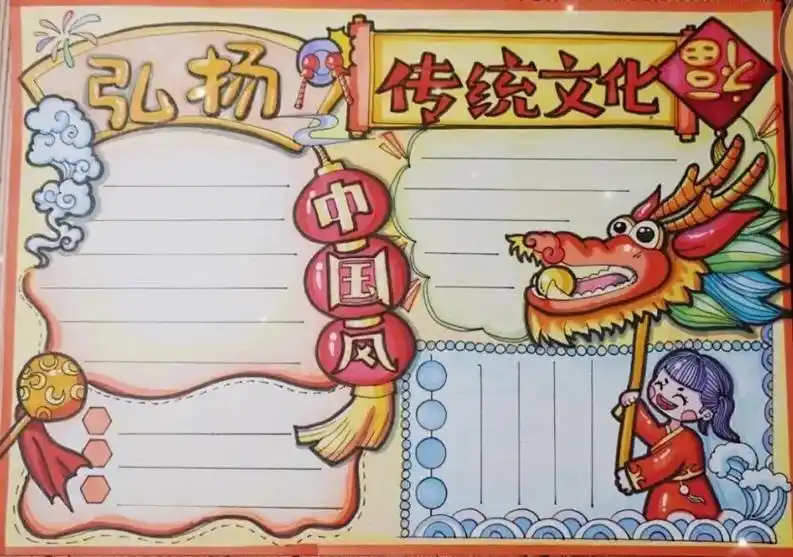 弘扬
传统文化
福
中国风